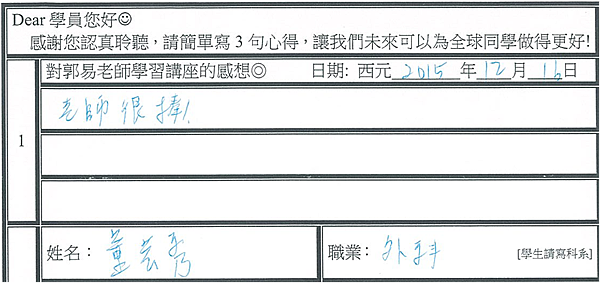 Dear 學員您好☺
感謝您認真聆聽，請簡單寫 3 句心得，讓我們未來可以為全球同學做得更好!
對郭易老師學習講座的感想◎ 日期: 西元 2015 年 12 月 16 日
老師很棒!
1
姓名： 董芸秀 職業： 外科 [學生請寫科系]